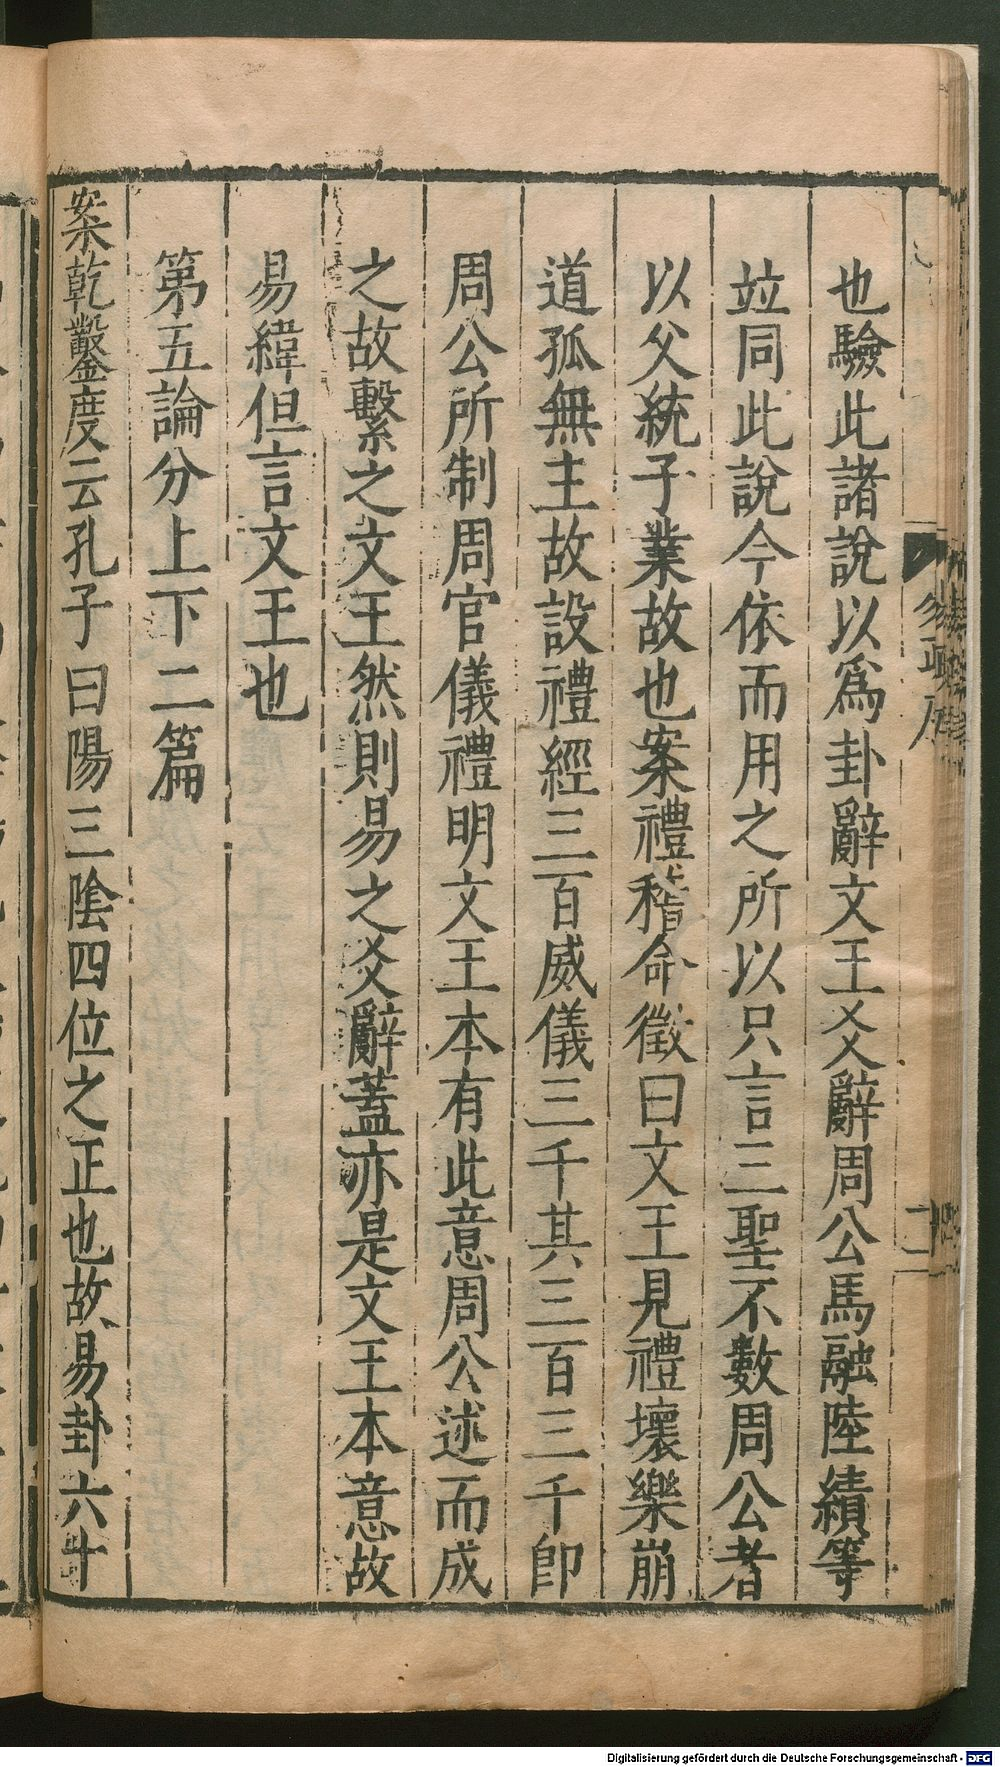 也驗此諸說以爲卦辭文王爻辭周公馬融陸績等
竝同此說今依而用之所以只言三聖不數周公者
以父統子業故也案禮稽命徵曰文王見禮壞樂崩
道孤無主故設禮經三百威儀三千其三百三千卽
周公所制周官儀禮明文王本有此意周公述而成
之故繫之文王然則易之爻辭蓋亦是文王本意故
易緯但言文王也
第五論分上下二篇
案乾鑿度云孔子曰陽三陰四位之正也故易卦六十
Digitalisierung gefördert durch die Deutsche Forschungsgemeinschaft - DFG